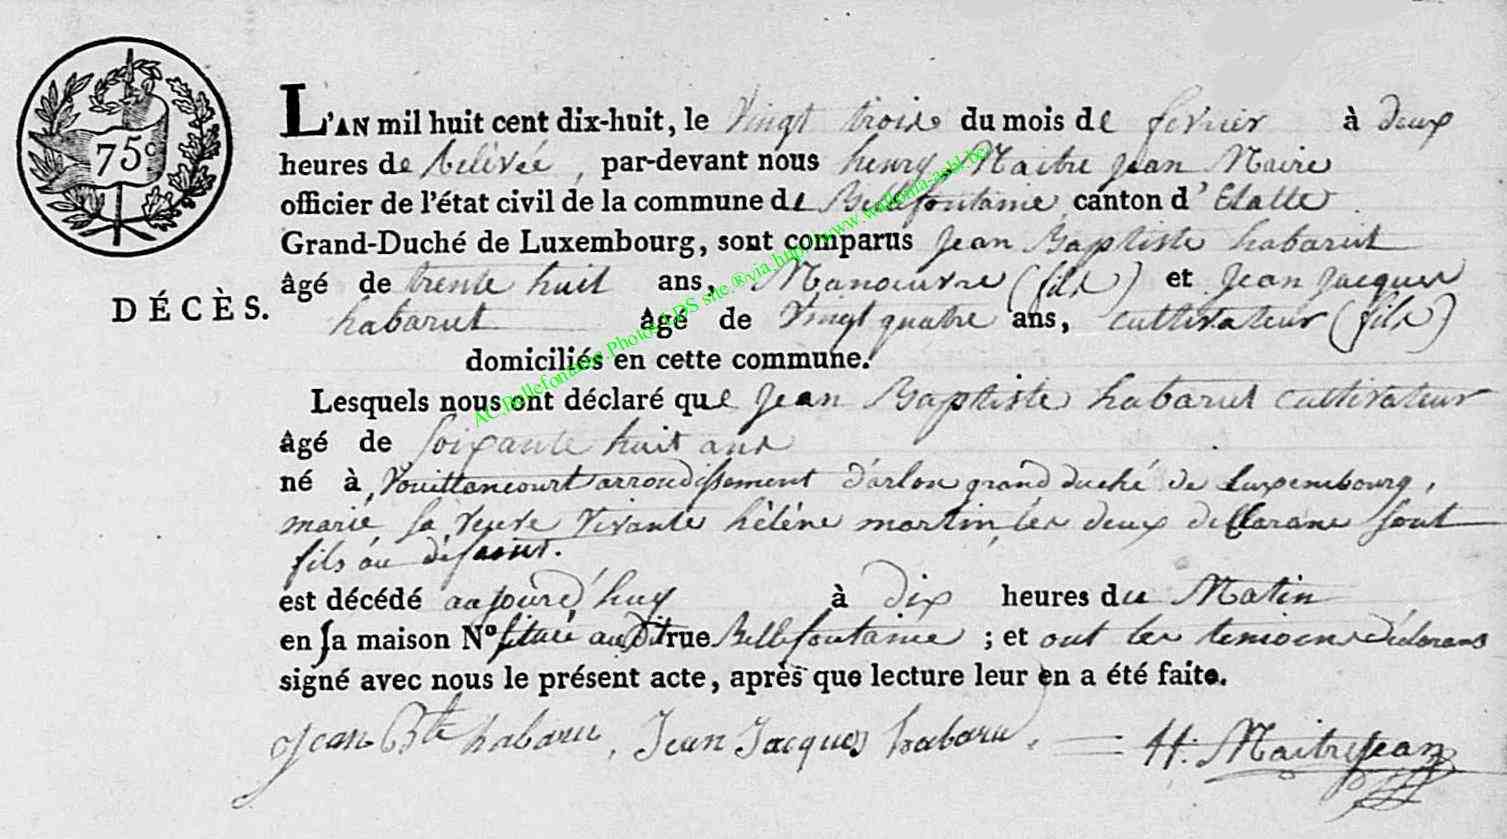 75c
L'AN mil huit cent dix-huit, le Vingt trois du mois de fevrier à deux
heures de Relivée, par-devant nous henry Maitre Jean Maire
officier de l'état civil de la commune de Bellefontaine canton d'Etalle
Grand-Duché de Luxembourg, sont comparus Jean Baptiste habarut
âgé de trente huit ans, Manoeuvre (fils) et Jean Jacques
DÉCÈS.
habarut âgé de Vingt quatre ans, cultivateur (fils)
domiciliés en cette commune.
Lesquels nous ont déclaré que Jean Baptiste habarut cultivateur
âgé de soixante huit ans
né à Vouittancourt arrondissement d'arlon grand duché de Luxembourg,
marié, sa veuve vivante hélène martin, les deux declarans sont
fils du défunt.
est décédé aujourd'huy à dix heures du Matin
en sa maison N° située audit rue Bellefontaine ; et ont les temoins déclarans
signé avec nous le présent acte, après que lecture leur en a été faite.
Jean Bte habaru, Jean Jacques habaru, H. Maitrejean
AC Bellefontaine Photo BDS site ®via http://www.wallonia-asbl.be/